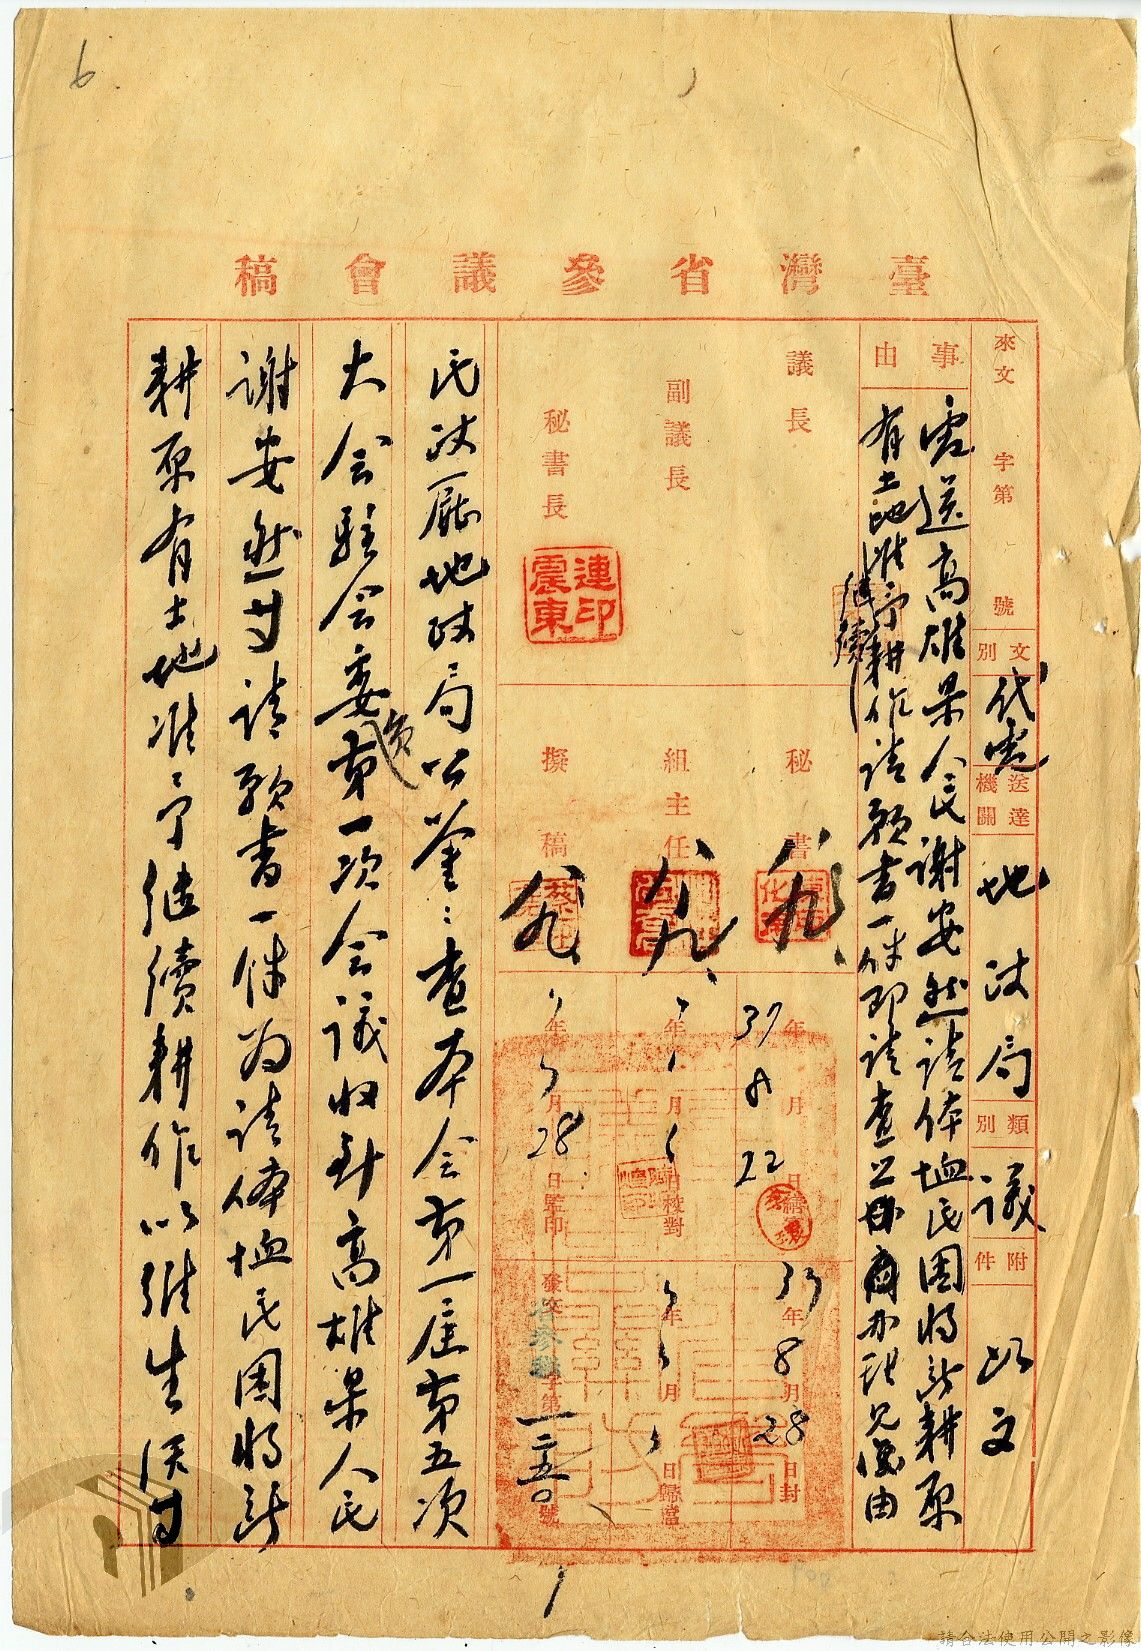 6
臺灣省參議會稿
來文 字第 號
文別 代電
送達機關 地政局
類別 議
附件 如文
事由
電送高雄縣人民謝安然請体恤民困將所耕原
有土地准予繼續耕作請願書一件即請查照辦理見復由
議長
副議長
秘書長
連震東印
秘書
組主任
撰稿
37年8月22日繕寫
年 月 日校對
年 月28日監印
37年8月28日封
年 月 日歸檔
發文 字第一二五〇號
民政廳地政局公鑒：查本会第一屆第五次
大会駐会委員第一次会議收到高雄縣人民
謝安然等請願書一件為請体恤民困將所
耕原有土地准予継續耕作以維生活等
請合法使用公開之影像